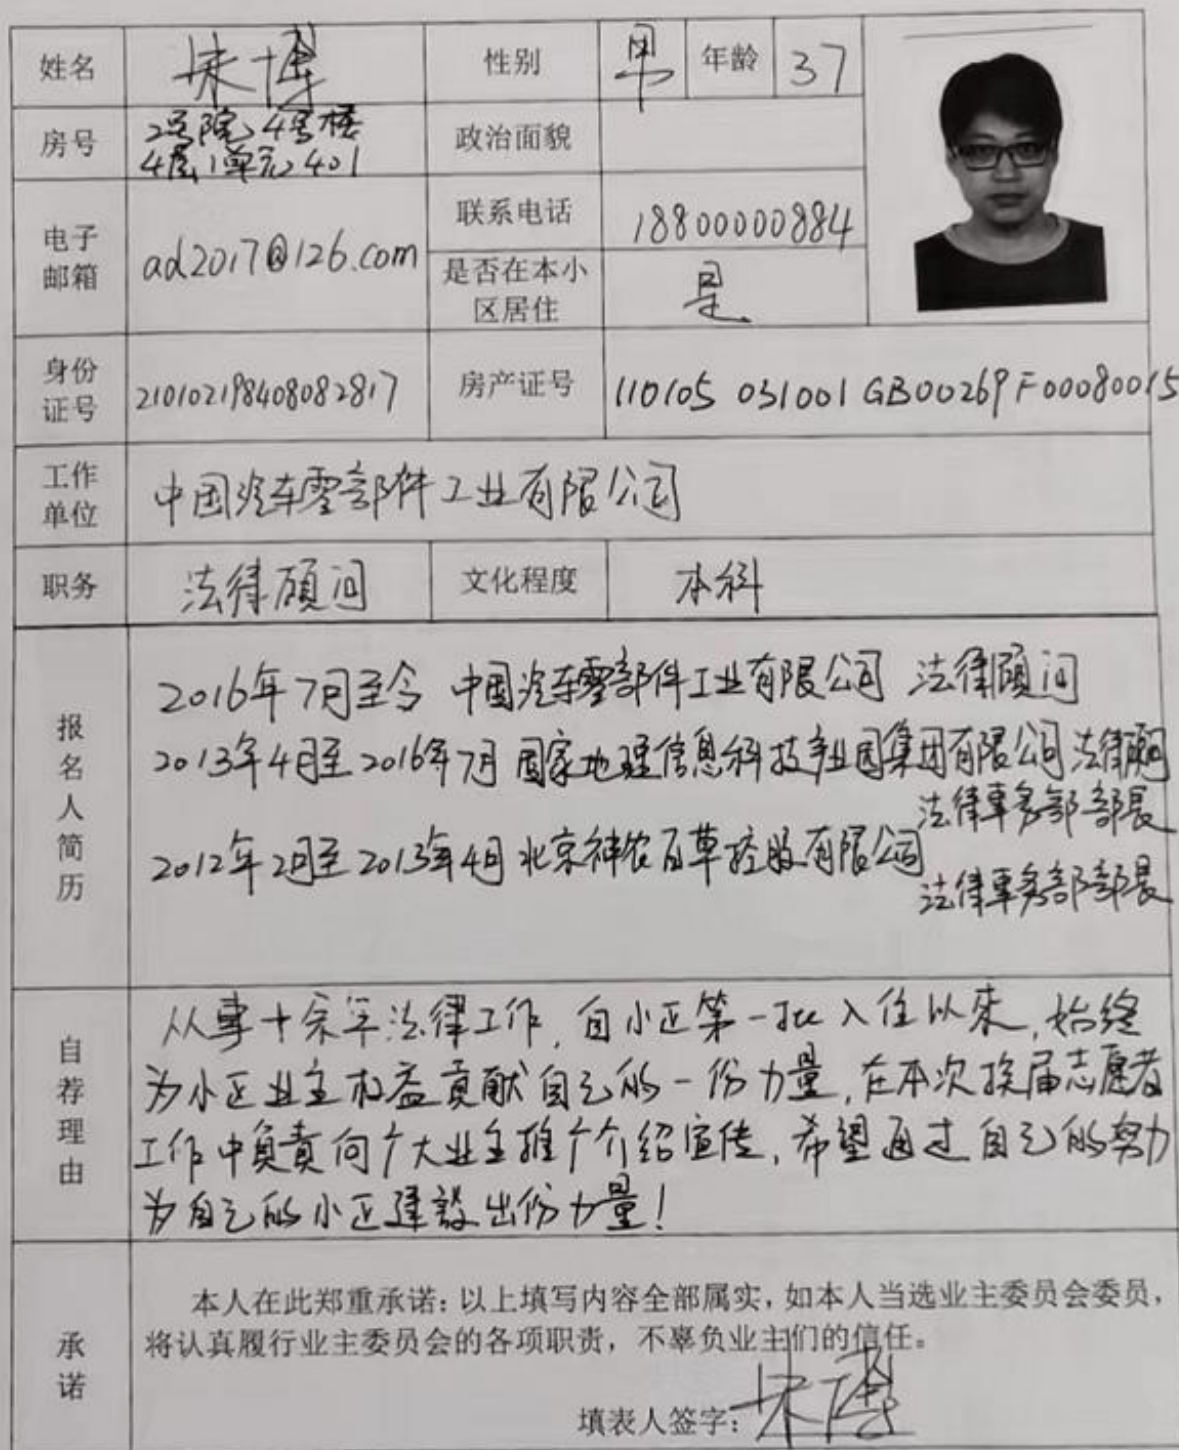 姓名 宋博 性别 男 年龄 37
房号 2号院4号楼 政治面貌
4层1单元401
电子 ad2017@126.com 联系电话 18800000884
邮箱 是否在本小 是
区居住
身份 210102198408082817 房产证号 110105 031001 GB00269 F00080015
证号
工作 中国汽车零部件工业有限公司
单位
职务 法律顾问 文化程度 本科
报名人简历
2016年7月至今 中国汽车零部件工业有限公司 法律顾问
2013年4月至2016年7月 国家地理信息科技产业园集团有限公司 法律顾问
法律事务部部长
2012年2月至2013年4月 北京神农百草控股有限公司
法律事务部部长
自荐理由
从事十余年法律工作,自小区第一批入住以来,始终
为小区业主权益贡献自己的一份力量,在本次换届志愿者
工作中负责向广大业主推广介绍宣传,希望通过自己的努力
为自己的小区建设出份力量!
承诺
本人在此郑重承诺:以上填写内容全部属实,如本人当选业主委员会委员,
将认真履行业主委员会的各项职责,不辜负业主们的信任。
填表人签字:宋博